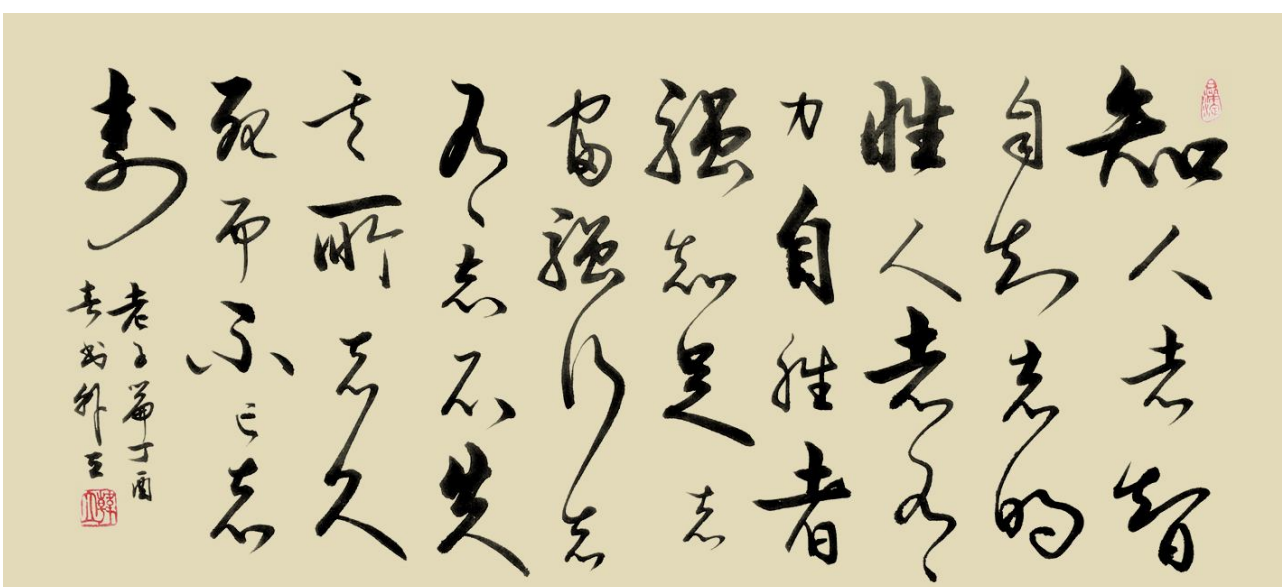 知人者智
自知者明
胜人者有
力自胜者
强知足者
富强行者
有志不失
其所者久
死而不亡者
寿
老子篇丁酉
春书韩立